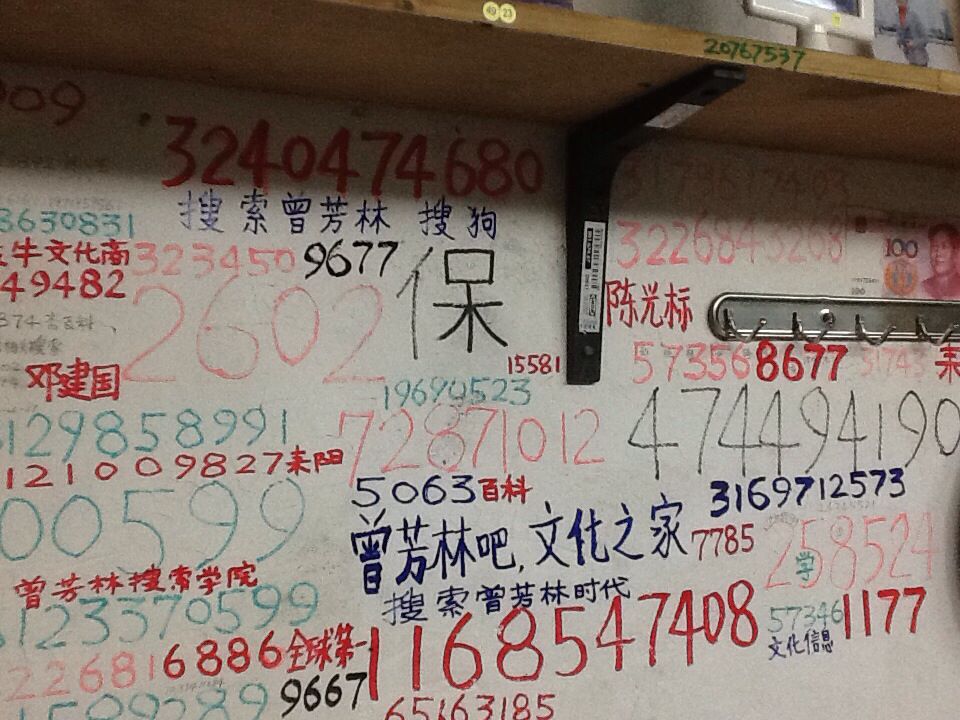 49 23
20767537
909
3240474680
搜索曾芳林 搜狗
3630831
牛文化商
323450
9677
保
49482
2602
322684
100
陈光标
15581
573568677
31743
耒
邓建国
19690523
129858991
72871012
474494190
121009827耒阳
5063百科
3169712573
00599
曾芳林吧,文化之家
7785
258524
学
曾芳林搜索学院
搜索曾芳林时代
123370599
1168547408
57346
1177
文化信息
226816886全球第一
9667
65163185